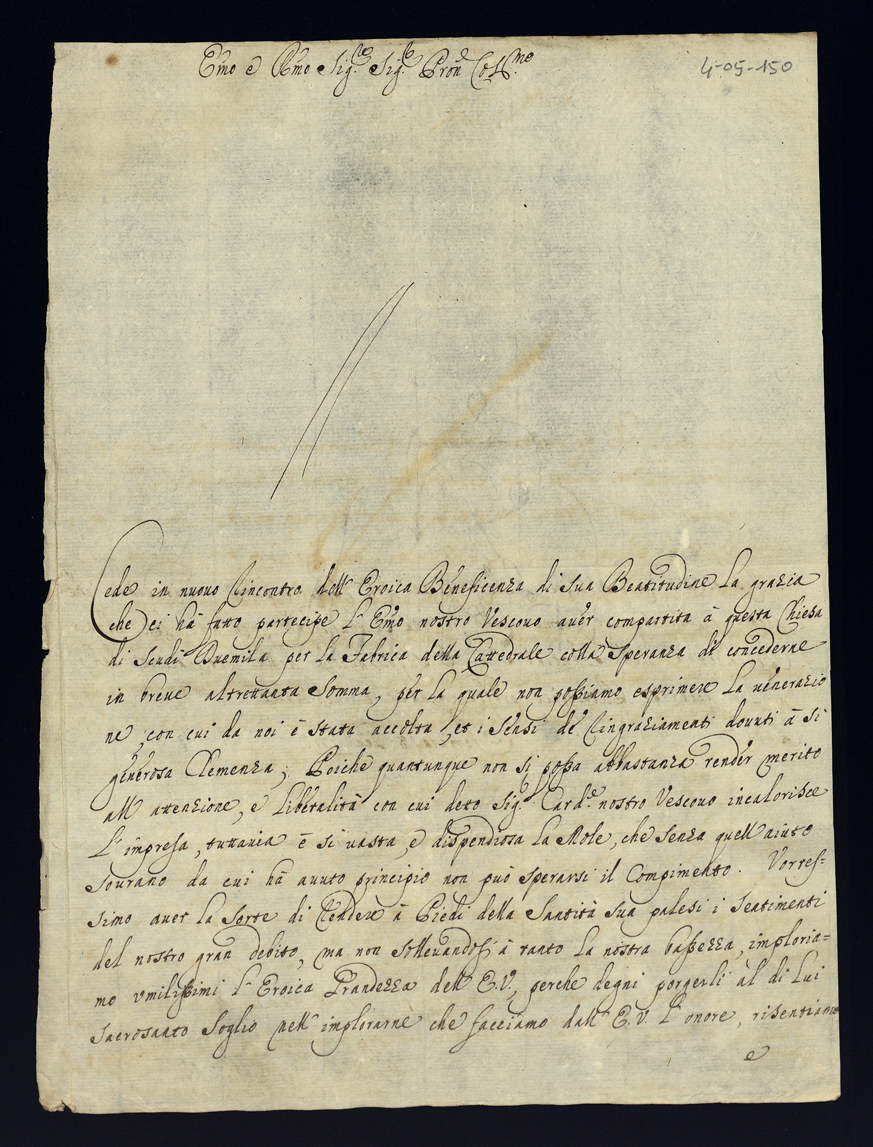 Emo e Rmo Sig.re Sig.r Pron Col.mo
4-05-150
Cede in nuouo Rincontro dell'Eroica Beneficenza di sua Beatitudine La grazia
che ci hà fatto partecipe l'Emo nostro Vescouo auer compartita à questa Chiesa
di Scudi Duemila per la Fabrica della Cattedrale colla Speranza di concederne
in breue altrettanta Somma, per la quale non possiamo esprimere La uenerazio
ne, con cui da noi è stata accolta, et i sensi de' Ringraziamenti douuti à sì
generosa Clemenza; Poiche quantunque non si possa abbastanza render merito
all'attenzione, e Liberalità con cui detto Sig.r Card.e nostro Vescouo incalorisce
L'impresa, tuttauia è si uasta, e dispendiosa La Mole, che senza quell'aiuto
Sourano da cui hà auuto principio non può sperarsi il Compimento. Vorres=
simo auer la Sorte di Render à Piedi della Santità Sua palesi i Sentimenti
del nostro gran debito, ma non solleuandosi à tanto La nostra bassezza, imploria=
mo vmilissimi l'Eroica Grandezza dell'E.V., perche degni porgerli al di Lui
Sacrosanto Soglio nell'implorarne che facciamo dall'E.V. l'onore, risentiamo
e